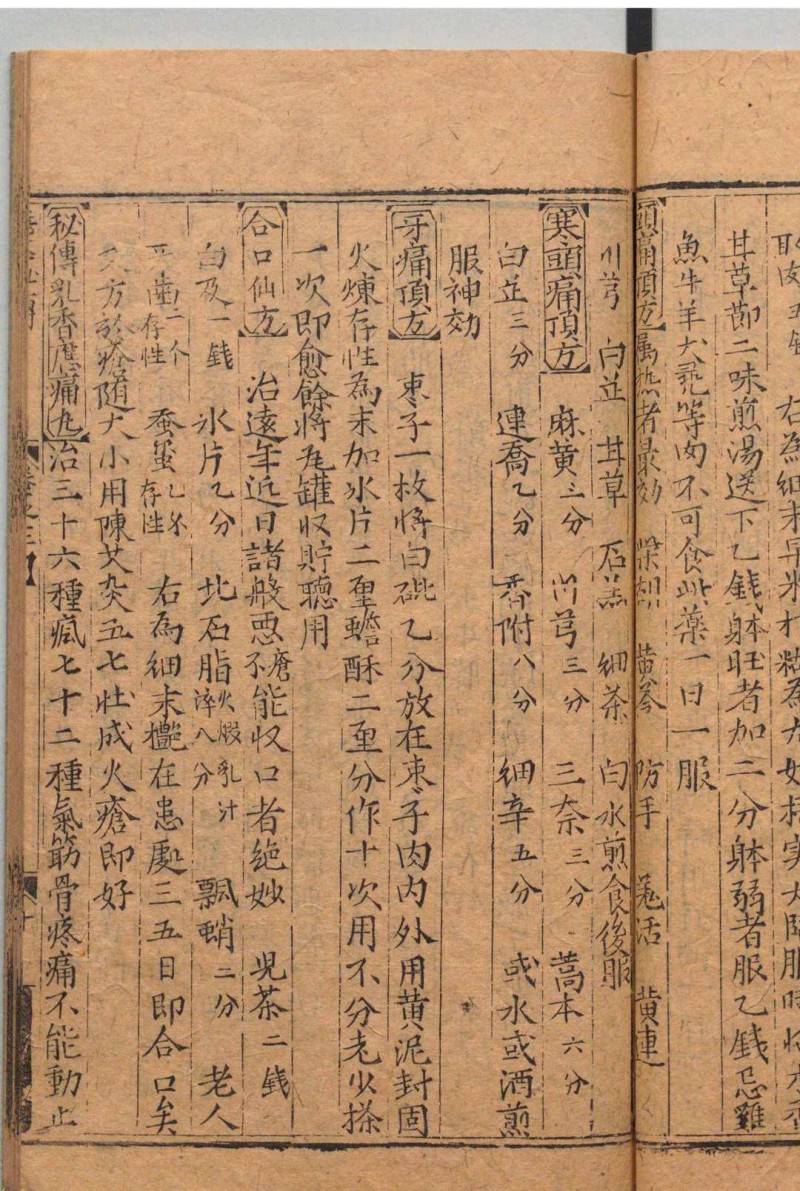 右為細末早米打糊為丸如梧實大臨服時將木香
甘草節二味煎湯送下乙錢躰旺者加二分躰弱者服乙錢忌雞
魚牛羊犬乳等肉不可食此藥一日一服
煎痛頂方屬熱者最効 柴胡 黃芩 防手 羌活 黃連
川芎 白芷 甘草 石羔 細茶 白水煎食後服
寒頭痛頂方 麻黃三分 川芎三分 三奈三分 蒿本六分
白芷三分 連喬乙分 香附八分 細辛五分 或水或酒煎
服神効
牙痛頂方 枣子一枚將白砒乙分放在枣子肉內外用黃泥封固
火煉存性為末加氷片二厘蟾酥二厘分作十次用不分老少搽
一次即愈餘將瓦罐收貯聽用
合口仙方 治遠年近日諸般惡瘡不能收口者絶妙 児茶二錢
白及一錢 氷片乙分 北石脂火煅乳汁淬八分 飄蛸二分 老人
牙齒二个存性 蚕蛋乙分存性 右為細末摻在患處三五日即合口矣
方於瘡隨大小用陳艾灸五七壯成火瘡即好
秘傳乳香應痛丸治三十六種瘋七十二種氣筋骨疼痛不能動止